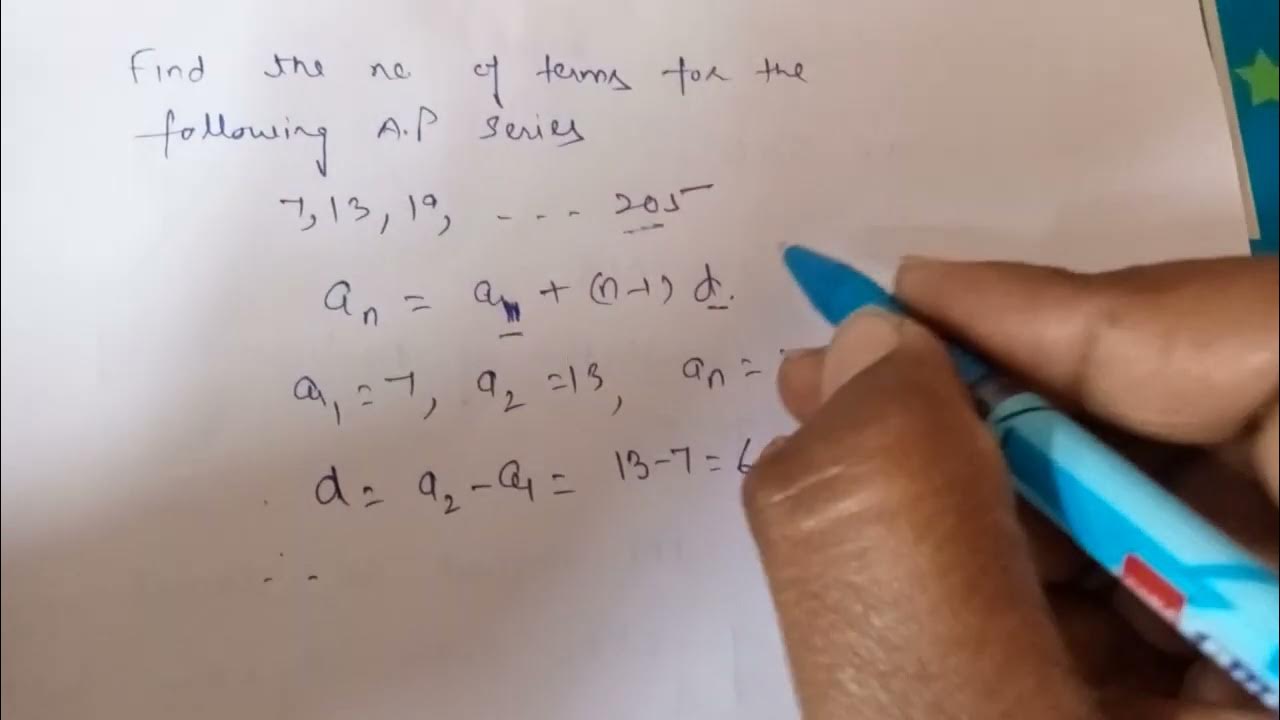 Find the no of terms for the
following A.P series
7, 13, 19, - - - - 205
an = a1 + (n-1) d.
a1 = 7, a2 = 13, an =
d = a2 - a1 = 13-7 = 6
∴